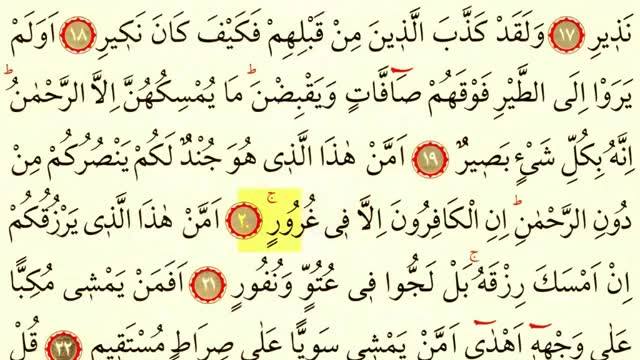 نَذ۪يرِ ﴿١٧﴾ وَلَقَدْ كَذَّبَ الَّذ۪ينَ مِنْ قَبْلِهِمْ فَكَيْفَ كَانَ نَك۪يرِ ﴿١٨﴾ اَوَلَمْ
يَرَوْا اِلَى الطَّيْرِ فَوْقَهُمْ صَٓافَّاتٍ وَيَقْبِضْنَۜ مَا يُمْسِكُهُنَّ اِلَّا الرَّحْمٰنُۜ
اِنَّهُ بِكُلِّ شَيْءٍ بَص۪يرٌ ﴿١٩﴾ اَمَّنْ هٰذَا الَّذ۪ي هُوَ جُنْدٌ لَكُمْ يَنْصُرُكُمْ مِنْ
دُونِ الرَّحْمٰنِۜ اِنِ الْكَافِرُونَ اِلَّا ف۪ي غُرُورٍۚ ﴿٢٠﴾ اَمَّنْ هٰذَا الَّذ۪ي يَرْزُقُكُمْ
اِنْ اَمْسَكَ رِزْقَهُۚ بَلْ لَجُّوا ف۪ي عُتُوٍّ وَنُفُورٍ ﴿٢١﴾ اَفَمَنْ يَمْش۪ي مُكِبًّا
عَلٰى وَجْهِه۪ٓ اَهْدٰٓى اَمَّنْ يَمْش۪ي سَوِيًّا عَلٰى صِرَاطٍ مُسْتَق۪يمٍ ﴿٢٢﴾ قُلْ